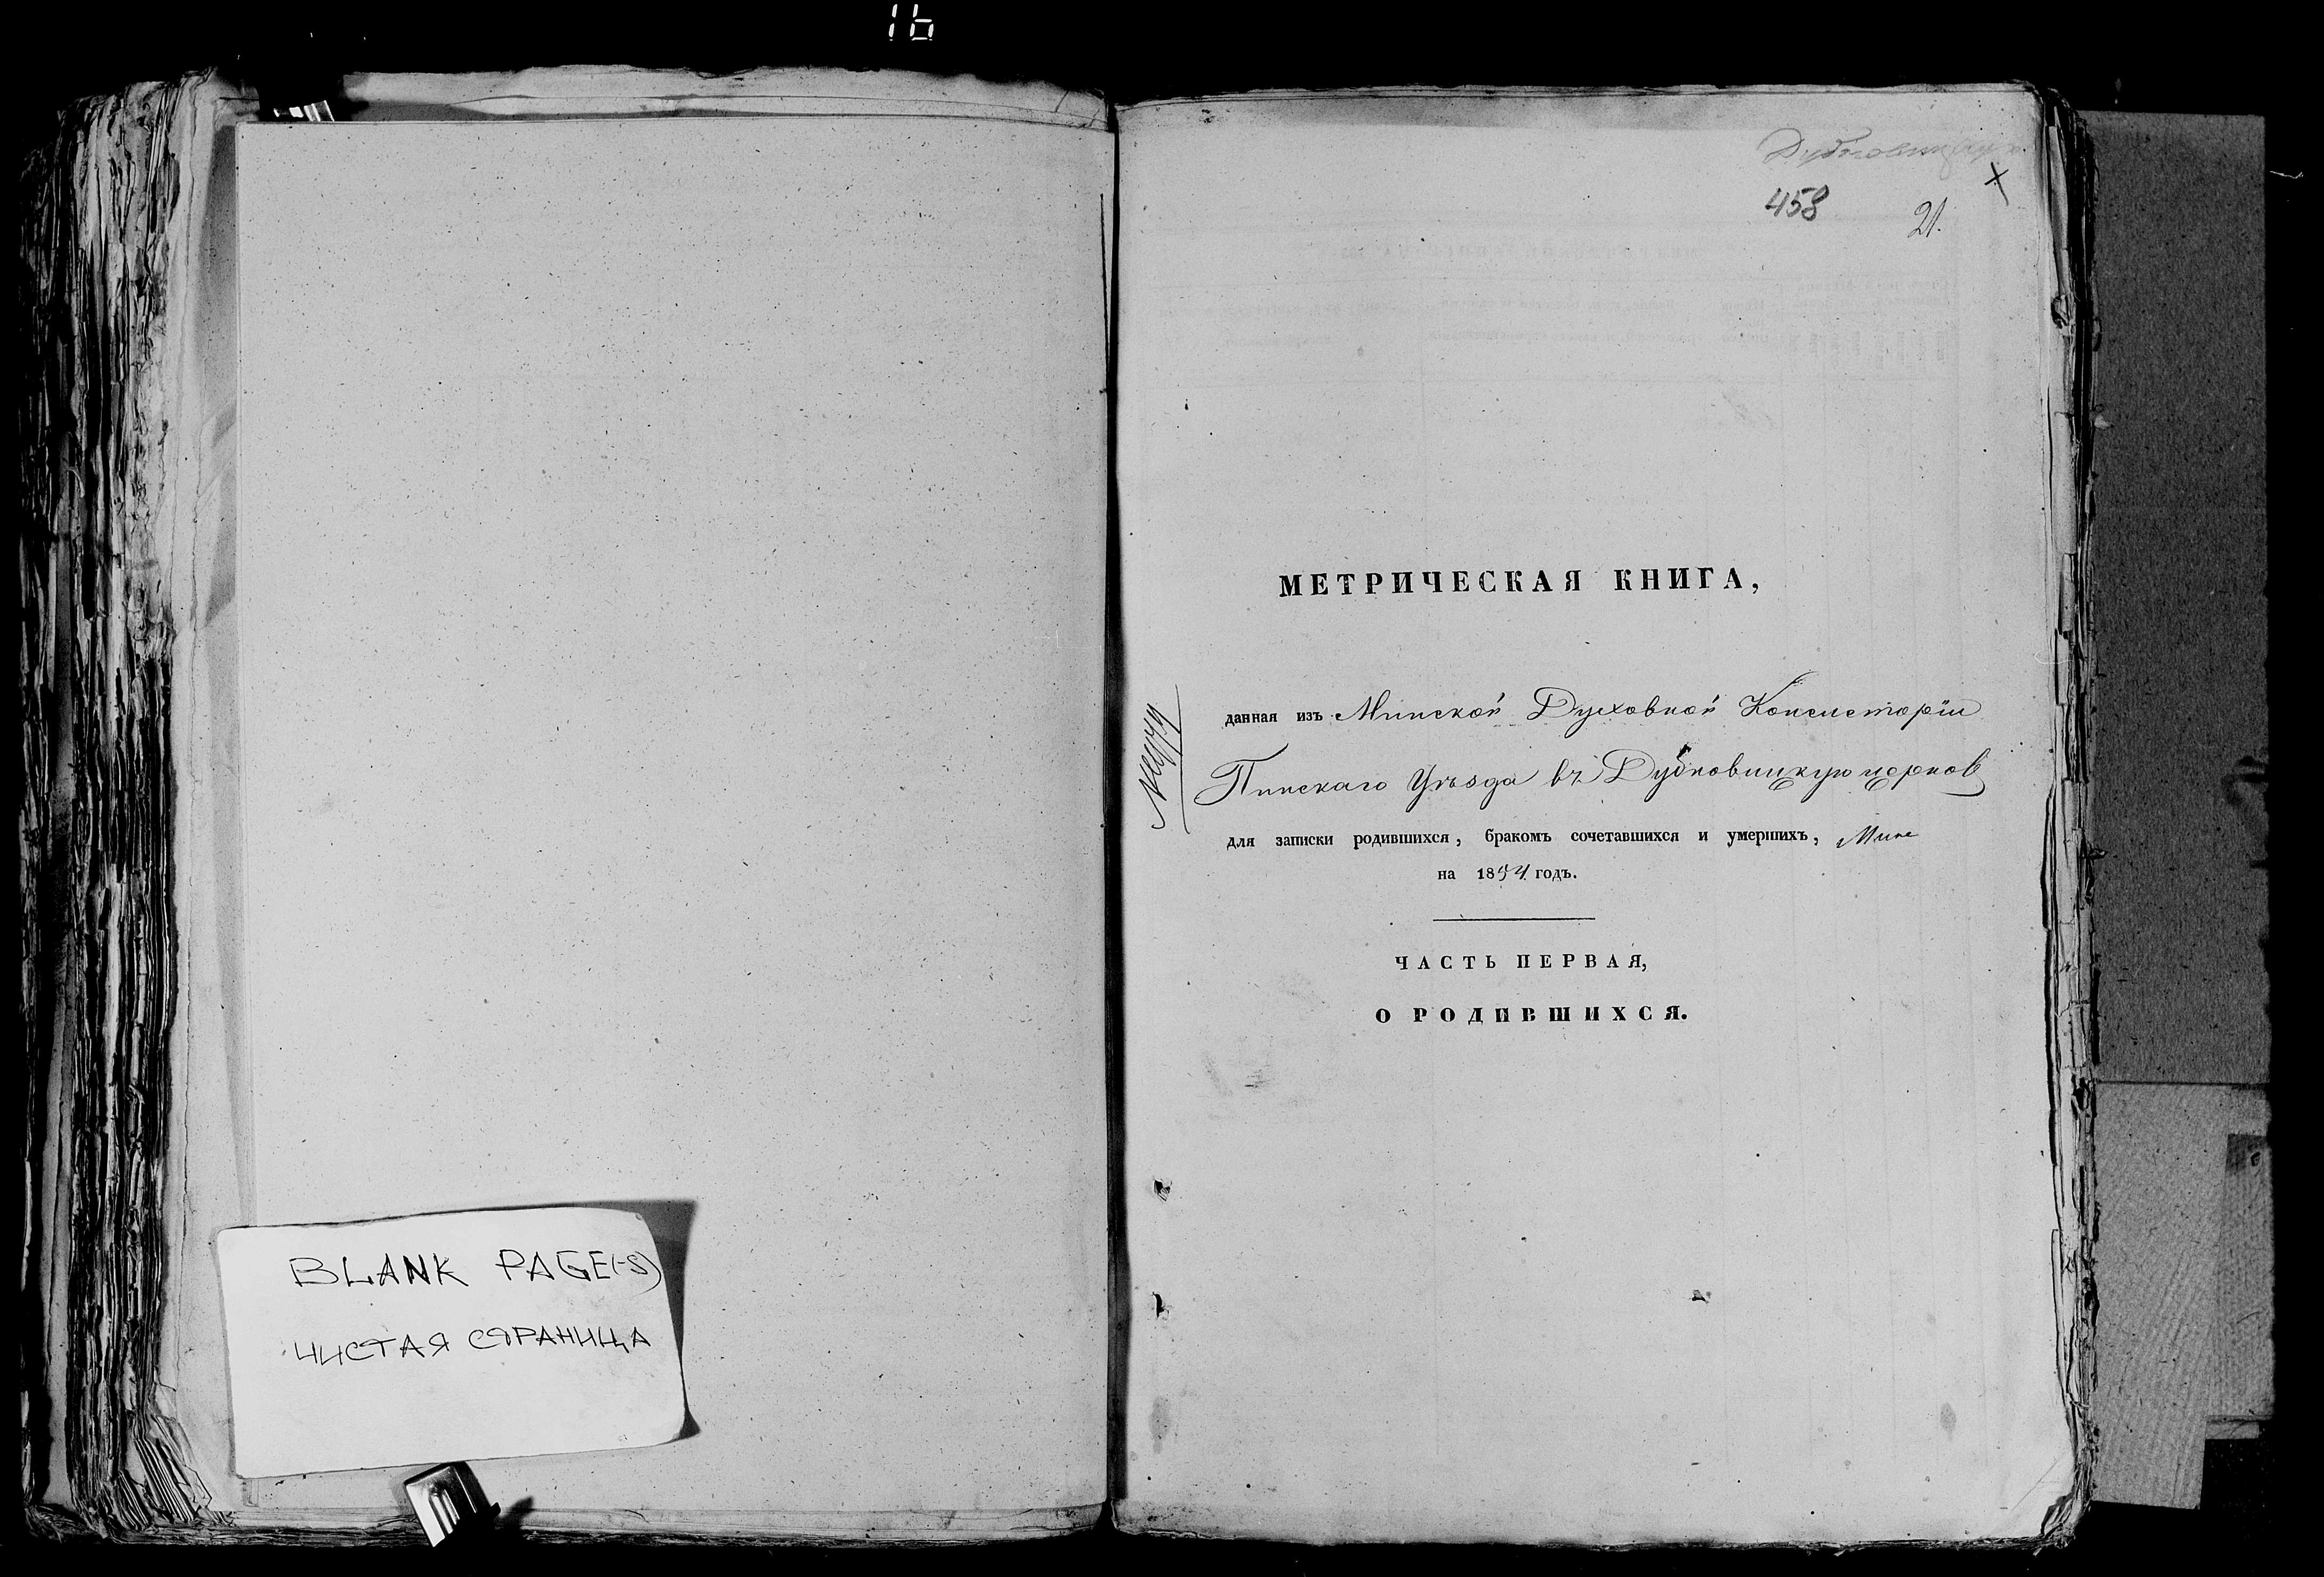 16
BLANK PAGE(-S)
ЧИСТАЯ СТРАНИЦА
458
21.
МЕТРИЧЕСКАЯ КНИГА,
данная изъ Минской Духовной Консисторіи
Пинскаго Уѣзда въ Дубновицкую церковь
для записки родившихся, бракомъ сочетавшихся и умершихъ,
на 1854 годъ.
ЧАСТЬ ПЕРВАЯ,
О РОДИВШИХСЯ.